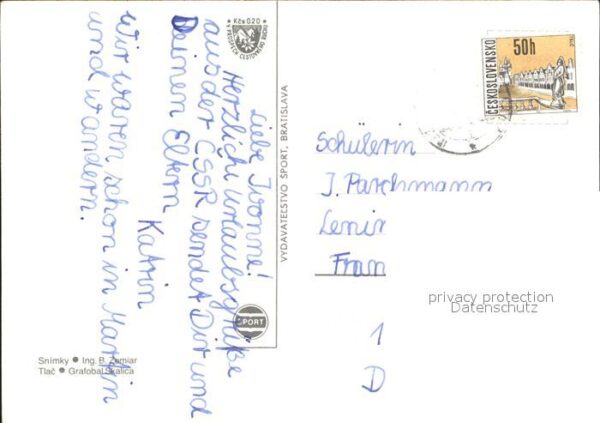 Liebe Ivonne!
Herzliche Urlaubsgrüße
aus der ČSSR sendet Dir und
Deinen Eltern
Katrin
Wir waren schon in Martin
und wandern.
Kčs 0,20
V PROSPECH CESTOVNÉHO RUCHU
VYDAVATEĽSTVO ŠPORT, BRATISLAVA
ŠPORT
Snímky ● Ing. B. Zemiar
Tlač ● Grafobal Skalica
ČESKOSLOVENSKO
50h
Schülerin
I. Parchmann
Fran
1
D
privacy protection
Datenschutz